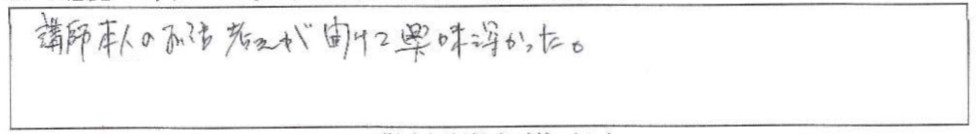 講師本人のお話 考えが聞けて興味深かった。